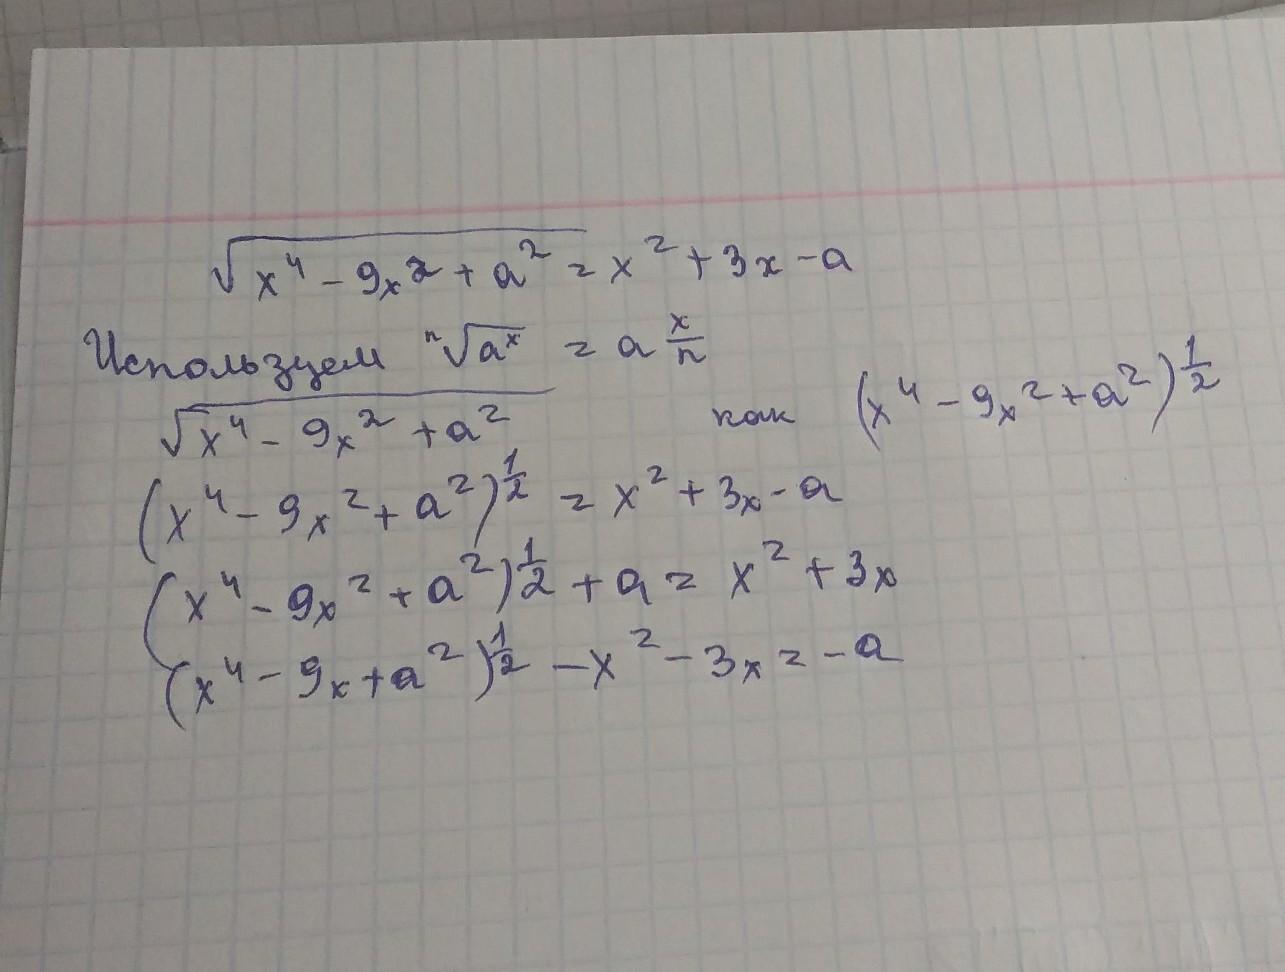 √(x⁴ - 9x² + a²) = x² + 3x - a
Используем ⁿ√(aˣ) = a^(x/n)
√(x⁴ - 9x² + a²) как (x⁴ - 9x² + a²)^(1/2)
(x⁴ - 9x² + a²)^(1/2) = x² + 3x - a
(x⁴ - 9x² + a²)^(1/2) + a = x² + 3x
(x⁴ - 9x + a²)^(1/2) - x² - 3x = -a